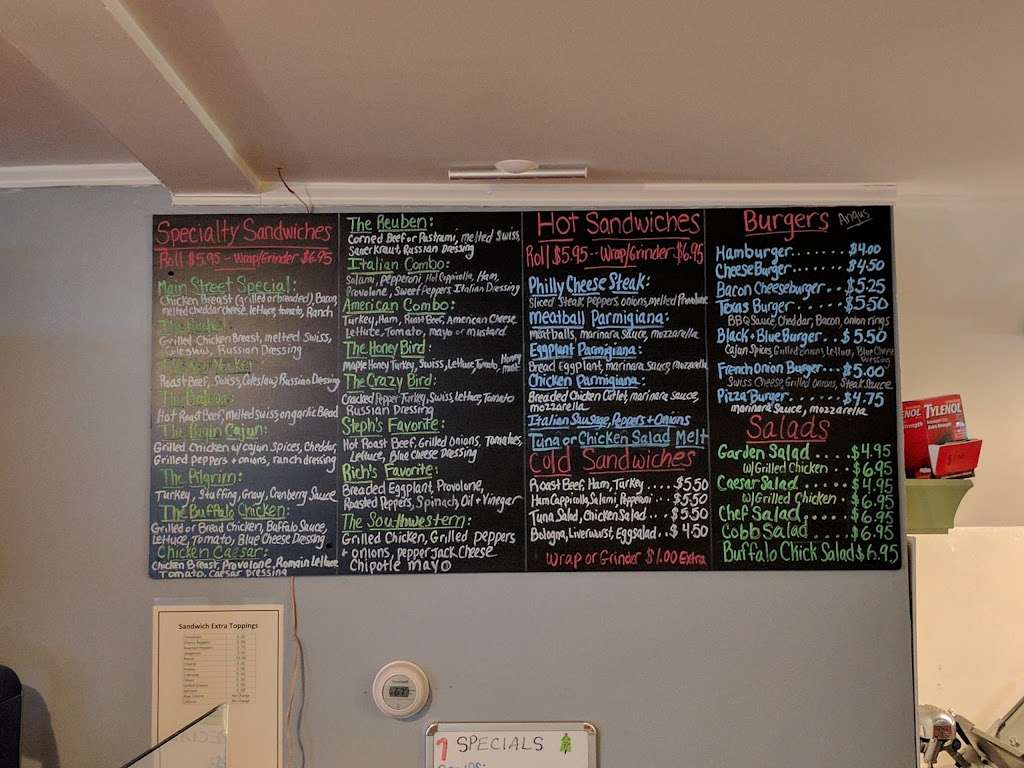 Specialty Sandwiches
Roll $5.95 -- Wrap/Grinder $6.95
Main Street Special:
Chicken Breast (grilled or breaded), Bacon,
melted cheddar cheese, lettuce, tomato, Ranch
The
Grilled Chicken Breast, melted Swiss,
Coleslaw, Russian Dressing
Roast Beef, Swiss, Coleslaw, Russian Dressing
The
Hot Roast Beef, melted Swiss on garlic Bread
The Ragin Cajun:
Grilled Chicken w/ cajun spices, Cheddar,
Grilled peppers + onions, ranch dressing
The Pilgrim:
Turkey, Stuffing, Gravy, Cranberry Sauce
The Buffalo Chicken:
Grilled or Bread Chicken, Buffalo Sauce,
Lettuce, Tomato, Blue Cheese Dressing
Chicken Caesar:
Chicken Breast, Provolone, Romain Lettuce
Tomato, Caesar Dressing
The Reuben:
Corned Beef or Pastrami, melted Swiss,
Sauerkraut, Russian Dressing
Italian Combo:
Salami, pepperoni, Hot Cappicolla, Ham,
Provolone, Sweet Peppers, Italian Dressing
American Combo:
Turkey, Ham, Roast Beef, American Cheese
Lettute, Tomato, mayo or mustard
The Honey Bird:
Maple Honey Turkey, Swiss, Lettuce, Tomato, Honey
must.
The Crazy Bird:
Cracked Pepper Turkey, Swiss, Lettuce, Tomato
Russian Dressing
Steph's Favorite:
Hot Roast Beef, Grilled onions, Tomatoes,
Lettuce, Blue Cheese Dressing
Rich's Favorite:
Breaded Eggplant, Provolone,
Roasted Peppers, Spinach, Oil + Vinegar
The Southwestern:
Grilled Chicken, Grilled peppers
+ onions, pepper Jack Cheese
Chipotle mayo
Hot Sandwiches
Roll $5.95--Wrap/Grinder $6.95
Philly Cheese Steak:
Sliced Steak, Peppers, onions, melted Provolone
Meatball Parmigiana:
meatballs, marinara Sauce, mozzarella
Eggplant Parmigiana:
Bread Eggplant, marinara Sauce, mozzarella
Chicken Parmigiana:
Breaded Chicken Cutlet, marinara sauce,
mozzarella
Italian Sausage, Peppers + Onions
Tuna or Chicken Salad Melt
Cold Sandwiches
Roast Beef, Ham, Turkey.... $5.50
Ham Cappicolla, Salami, Pepperoni.... $5.50
Tuna Salad, Chicken Salad.... $5.50
Bologna, Liverwurst, Eggsalad.. $4.50
Wrap or Grinder $1.00 Extra
Burgers Angus
Hamburger........ $4.00
Cheese Burger....... $4.50
Bacon Cheeseburger... $5.25
Texas Burger....... $5.50
BBQ Sauce, Cheddar, Bacon, onion rings
Black + Blue Burger... $5.50
Cajun Spices, Grilled onions, Lettuce, Blue Cheese
Dressing
French Onion Burger.... $5.00
Swiss Cheese, Grilled onions, Steak Sauce
Pizza Burger....... $4.75
marinara Sauce, mozzarella
Salads
Garden Salad.... $4.95
w/Grilled Chicken $6.95
Caesar Salad.... $4.95
w/Grilled Chicken . $6.95
Chef Salad.... $6.95
Cobb Salad.... $6.95
Buffalo Chick Salad $6.95
TYLENOL
Sandwich Extra Toppings
67
SPECIALS